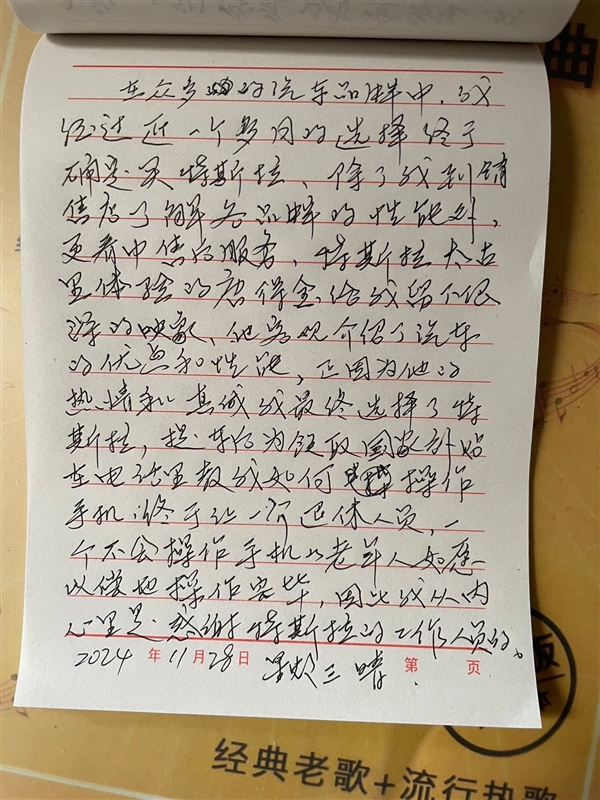 在众多的汽车品牌中，我
经过近一个多月的选择终于
确定买特斯拉、除了我到销
售店了解各品牌的性能外，
更看中售后服务、特斯拉太古
里体验的唐得金给我留下很
深的映象、他客观介绍了汽车
的优点和性能，正因为他的
热情和真诚我最终选择了特
斯拉，提车后为领取国家补贴
在电话里教我如何操作
手机；终于让一个退休人员，一
个不会操作手机的老年人如愿
以偿地操作完毕，因此我从内
心里是感谢特斯拉的工作人员的。
2024年11月28日 三 第 页
曲
版
经典老歌+流行热歌